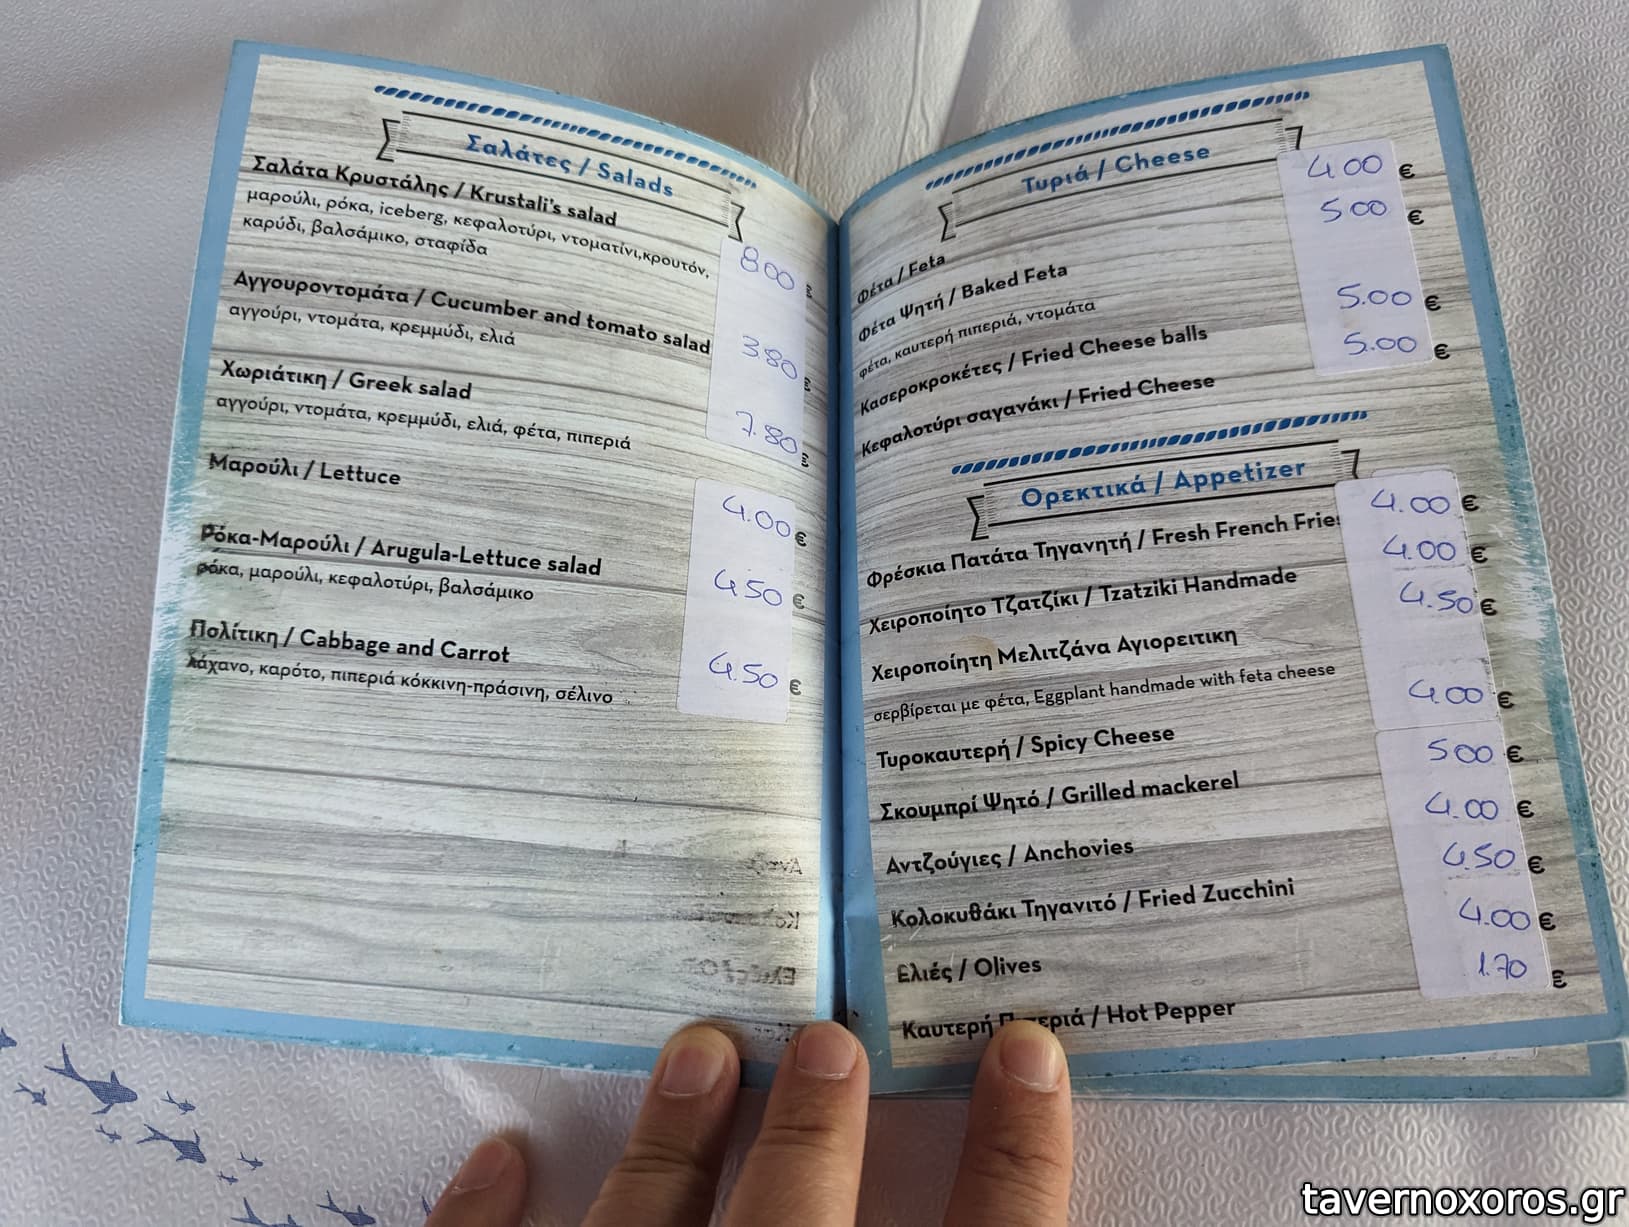 Σαλάτες / Salads
Σαλάτα Κρυστάλης / Krustali's salad
μαρούλι, ρόκα, iceberg, κεφαλοτύρι, ντοματίνι,κρουτόν,
καρύδι, βαλσάμικο, σταφίδα
800 €
Αγγουροντομάτα / Cucumber and tomato salad
αγγούρι, ντομάτα, κρεμμύδι, ελιά
380 €
Χωριάτικη / Greek salad
αγγούρι, ντομάτα, κρεμμύδι, ελιά, φέτα, πιπεριά
7.80 €
Μαρούλι / Lettuce
4.00 €
Ρόκα-Μαρούλι / Arugula-Lettuce salad
ρόκα, μαρούλι, κεφαλοτύρι, βαλσάμικο
450 €
Πολίτικη / Cabbage and Carrot
λάχανο, καρότο, πιπεριά κόκκινη-πράσινη, σέλινο
4.50 €
Τυριά / Cheese
Φέτα / Feta
400 €
Φέτα Ψητή / Baked Feta
500 €
φέτα, καυτερή πιπεριά, ντομάτα
Κασεροκροκέτες / Fried Cheese balls
5.00 €
Κεφαλοτύρι σαγανάκι / Fried Cheese
5.00 €
Ορεκτικά / Appetizer
Φρέσκια Πατάτα Τηγανητή / Fresh French Fries
4.00 €
Χειροποίητο Τζατζίκι / Tzatziki Handmade
4.00 €
Χειροποίητη Μελιτζάνα Αγιορειτικη
4.50 €
σερβίρεται με φέτα, Eggplant handmade with feta cheese
Τυροκαυτερή / Spicy Cheese
4.00 €
Σκουμπρί Ψητό / Grilled mackerel
500 €
Αντζούγιες / Anchovies
4.00 €
Κολοκυθάκι Τηγανιτό / Fried Zucchini
4.50 €
Ελιές / Olives
4.00 €
Καυτερή Πιπεριά / Hot Pepper
1.70 €
tavernoxoros.gr